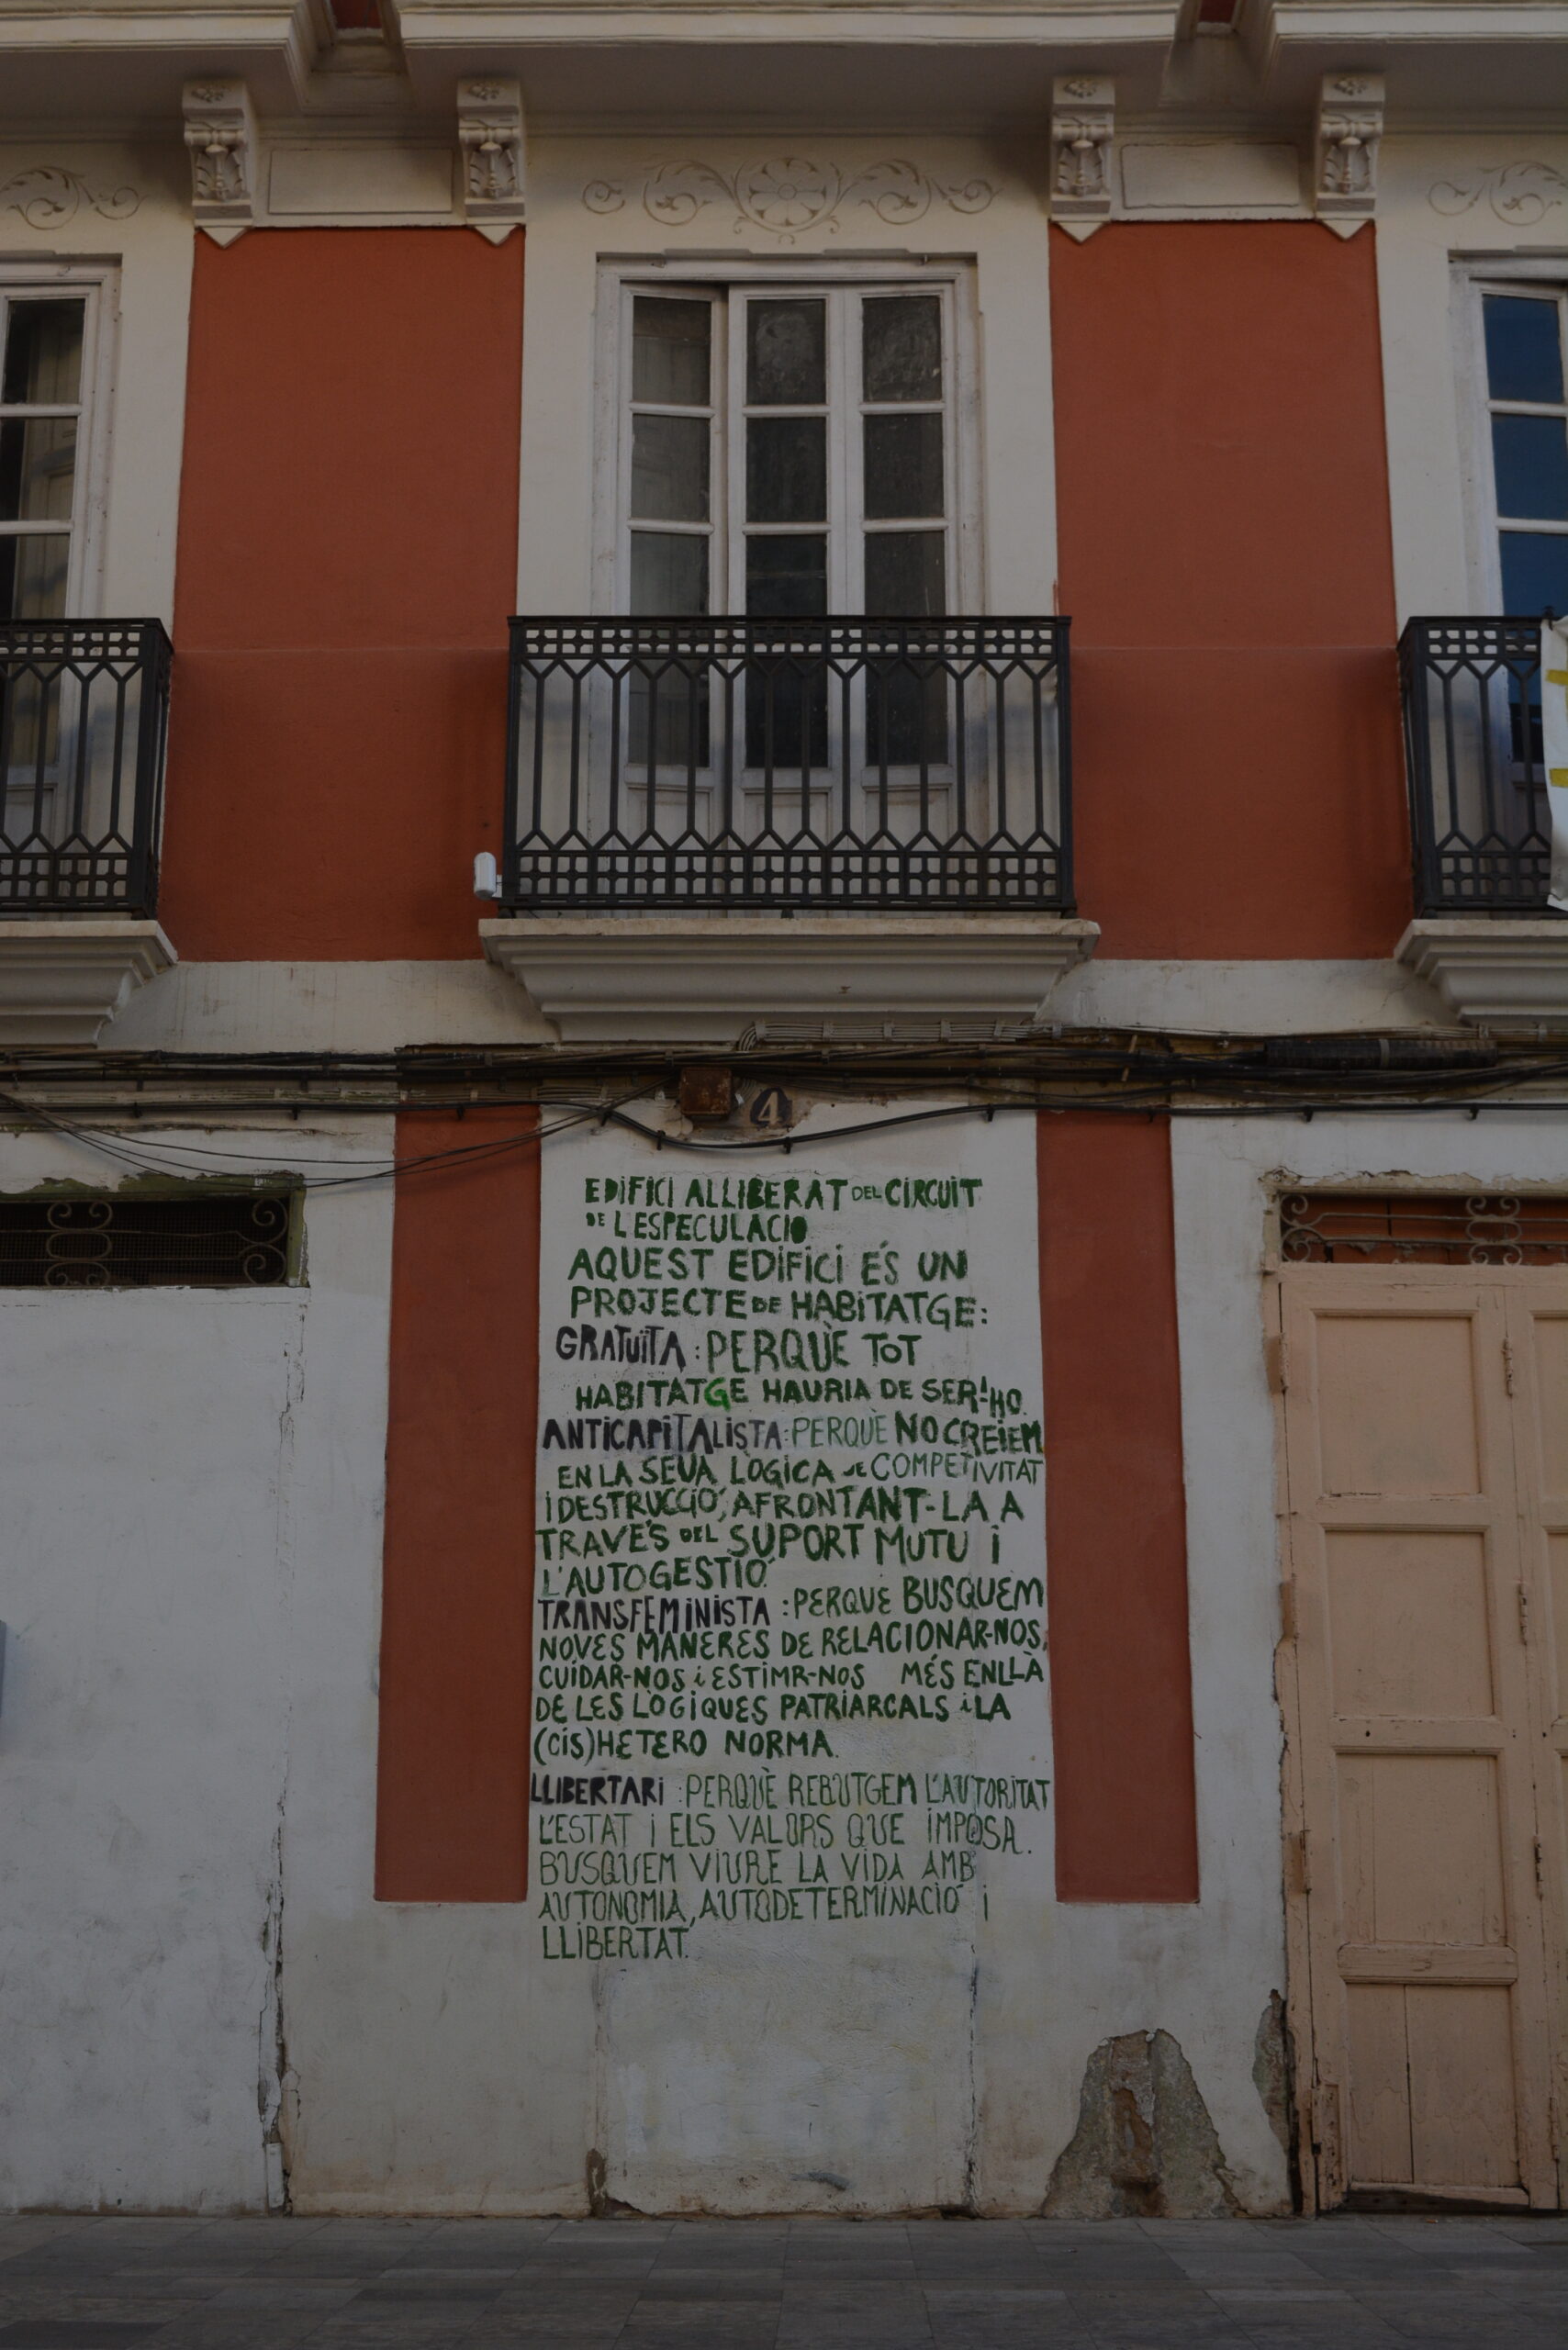 4
EDIFICI ALLIBERAT DEL CIRCUIT
DE L'ESPECULACIÓ
AQUEST EDIFICI ÉS UN
PROJECTE DE HABITATGE:
GRATUÏTA: PERQUÈ TOT
HABITATGE HAURIA DE SER-HO.
ANTICAPITALISTA: PERQUÈ NO CREIEM
EN LA SEUA LÒGICA DE COMPETIVITAT
I DESTRUCCIÓ, AFRONTANT-LA A
TRAVÉS DEL SUPORT MUTU I
L'AUTOGESTIÓ.
TRANSFEMINISTA: PERQUÈ BUSQUEM
NOVES MANERES DE RELACIONAR-NOS,
CUIDAR-NOS I ESTIMR-NOS MÉS ENLLÀ
DE LES LÒGIQUES PATRIARCALS I LA
(CIS)HETERO NORMA.
LLIBERTARI: PERQUÈ REBUTGEM L'AUTORITAT
L'ESTAT I ELS VALORS QUE IMPOSA.
BUSQUEM VIURE LA VIDA AMB
AUTONOMIA, AUTODETERMINACIÓ I
LLIBERTAT.